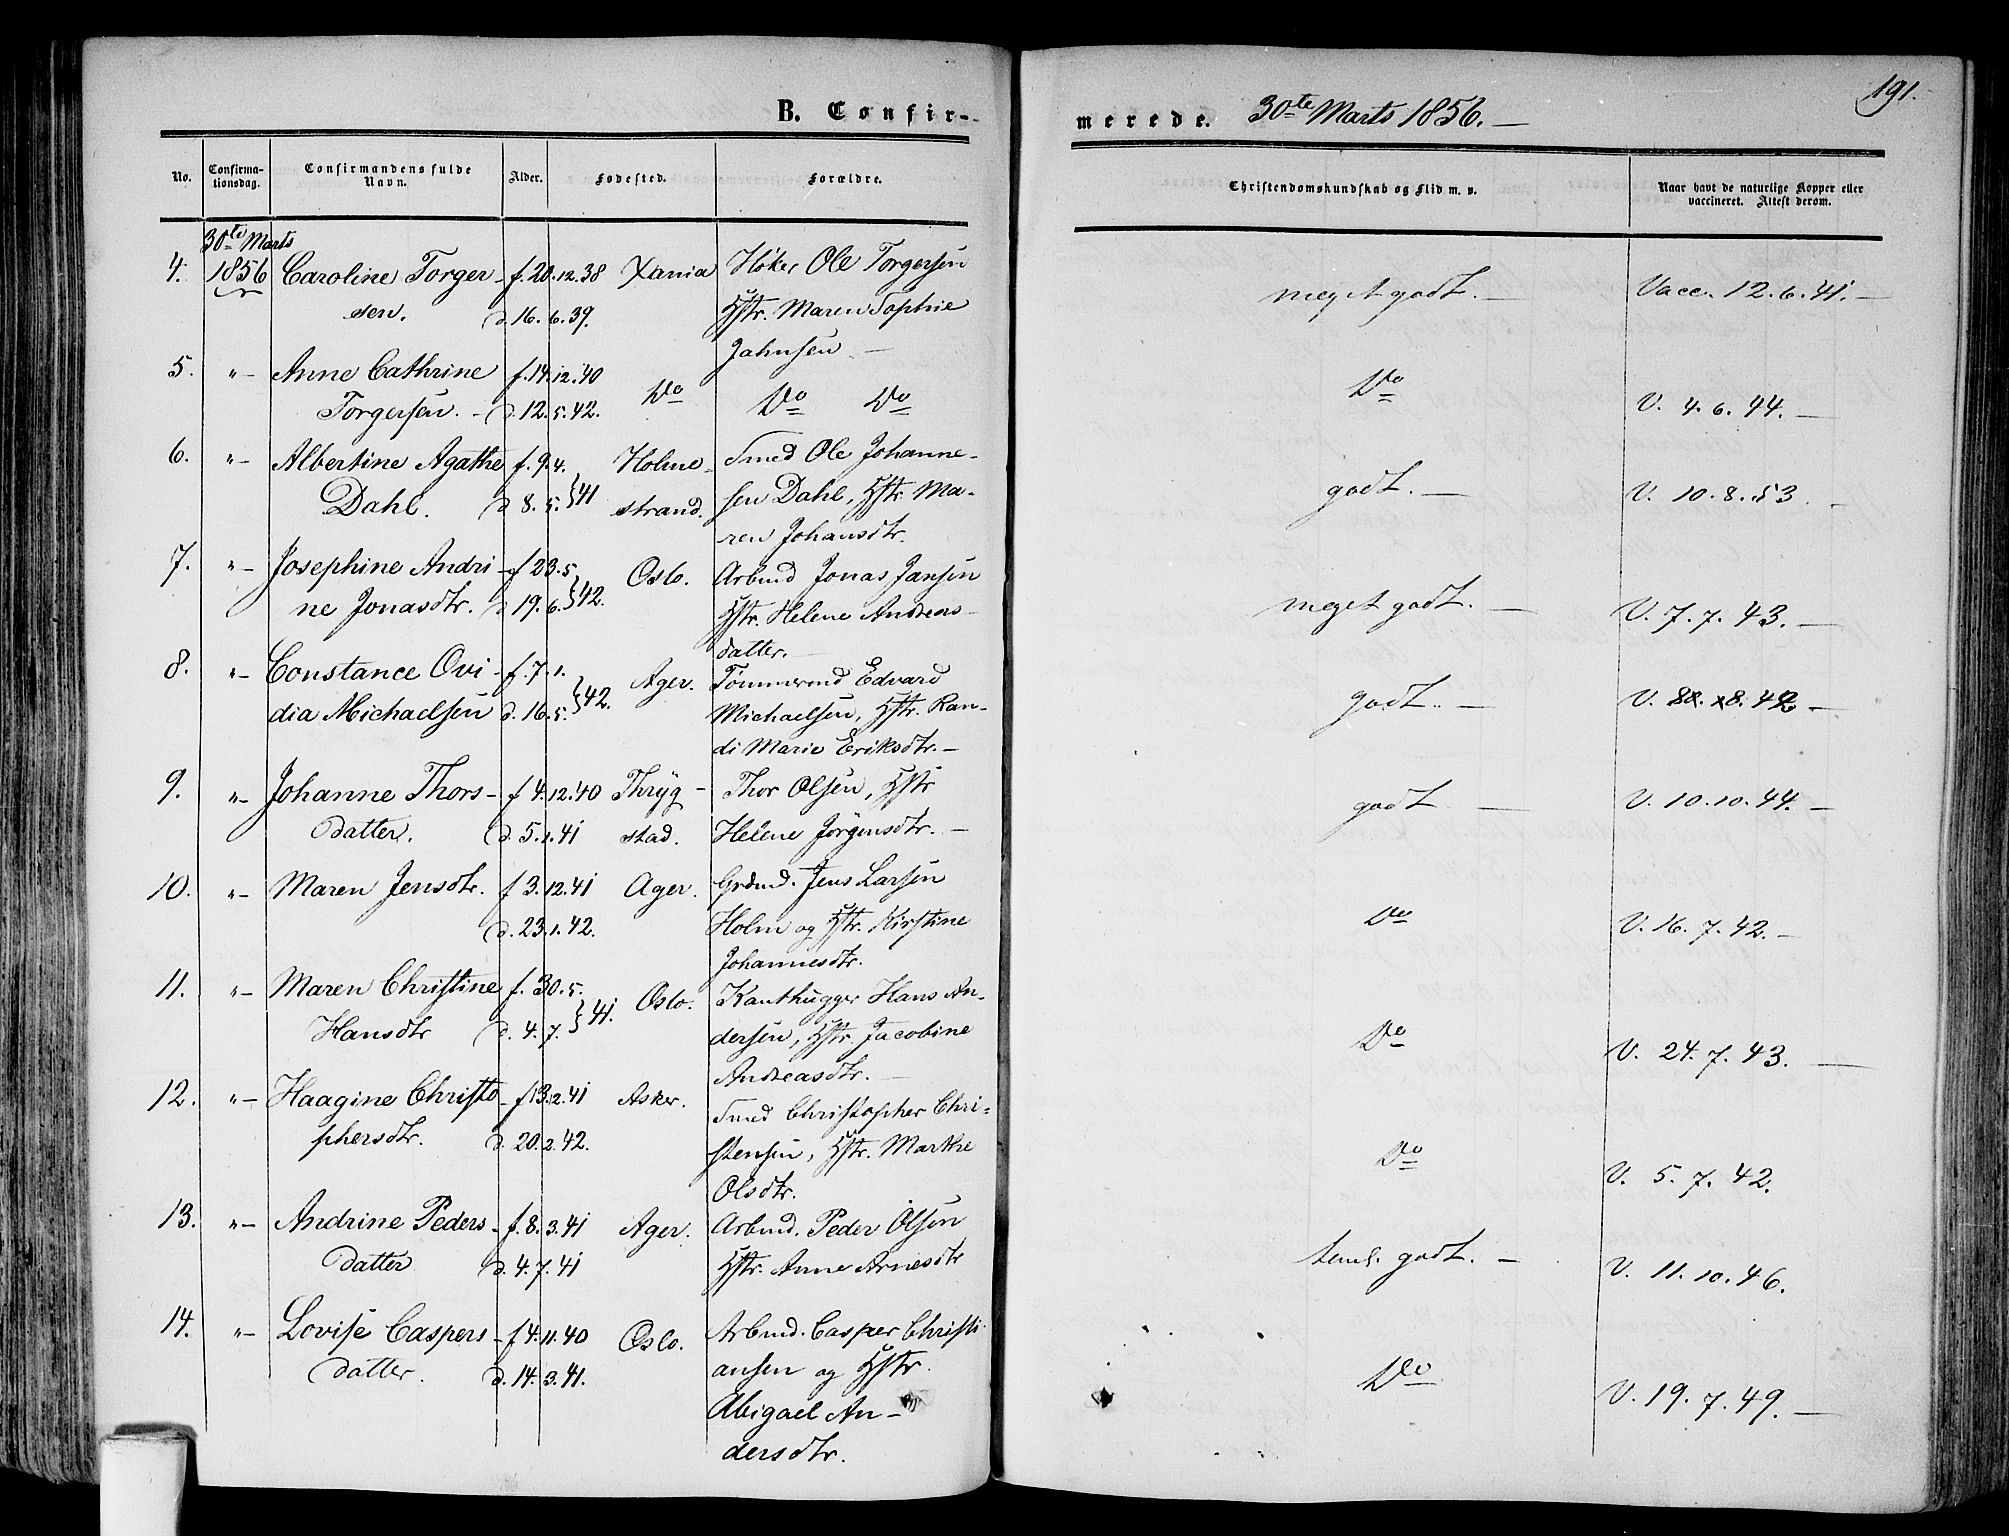 B. Confir-
merede. 30te Marts 1856. —
191.
No.
Confirma-
tionsdag.
Confirmandens fulde
Navn.
Alder.
Fødested.
Forældre.
Christendomskundskab og Flid m. v.
Naar havt de naturlige Kopper eller
vaccineret. Attest derom.
30te Marts
4. 1856 Caroline Torger- f. 20.12.38 Xania Høker Ole Torgersen meget godt. — Vacc. 12.6.41. —
sen. d. 16. 6. 39. Hstr. Maren Sophie
Jahnsen —
5. " — Anne Cathrine f. 14.12.40 Do Do Do Do V. 4. 6. 44. —
Torgersen. - d. 12. 5. 42.
6. " — Albertine Agathe f. 9. 4. Holme- Smed Ole Johanne- godt. — V. 10. 8. 53. —
Dahl. d. 8. 5. } 41 strand. sen Dahl, Hstr. Ma-
ren Johansdtr.
7. " — Josephine Andri- f 23. 5 Oslo. Arbmd Jonas Jansen meget godt. — V. 7. 7. 43. —
ne Jonasdtr. d 19. 6. } 42. Hstr. Helene Andreas-
datter. —
8. " — Constance Ovi- f. 7. 1. Ager. Tømmermd Edvard godt. — V. 8. 42 —
dia Michaelsen d. 16. 5. } 42. Michaelsen, Hstr. Ran-
di Marie Eriksdtr. —
9. " — Johanne Thors- f 4. 12. 40 Thryg- Thor Olsen, Hstr godt — V. 10. 10. 44. —
datter. d. 5. 1. 41 stad. Helene Jørgensdtr. —
10. " — Maren Jensdtr. f 3. 12. 41 Ager. Grdmd. Jens Larsen Do V. 16. 7. 42. —
d. 23. 1. 42. Holm og Hstr. Kirstine
Johannesdtr.
11. " — Maren Christine f. 30. 5. Oslo. Kanthugger Hans An- Do V. 24. 7. 43. —
Hansdtr d. 4. 7. } 41. dersen, Hstr. Jacobine
Andreasdtr. —
12. " — Haagine Christo- f 13. 12. 41 Asker. Smed Christopher Chri- Do V. 5. 7. 42.
phersdtr. d. 20. 2. 42. stensen, Hstr. Marthe
Olsdtr.
13. " — Andrine Peders- f. 8. 3. 41 Ager. Arbmd. Peder Olsen teml. godt. — V. 11. 10. 46.
datter d. 4. 7. 41 Hstr. Anne Arnesdtr
14. " — Lovise Caspers- f 4. 11. 40 Oslo. Arbmd. Casper Christi- Do V. 19. 7. 49. —
datter. d. 14. 3. 41. ansen og Hstr.
Abigael An-
dersdtr.